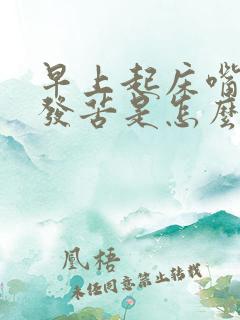 早上起床嘴
發苦是怎麼
凰梧
未经同意禁止转载